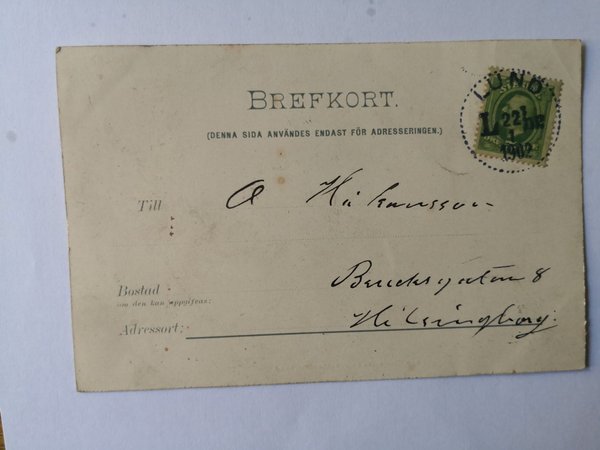 BREFKORT.
(DENNA SIDA ANVÄNDES ENDAST FÖR ADRESSERINGEN.)
LUND
L 22 1 BR
1902
Till A Håkansson
Bostad
om den kan uppgifvas:
8
Adressort: Helsingborg.